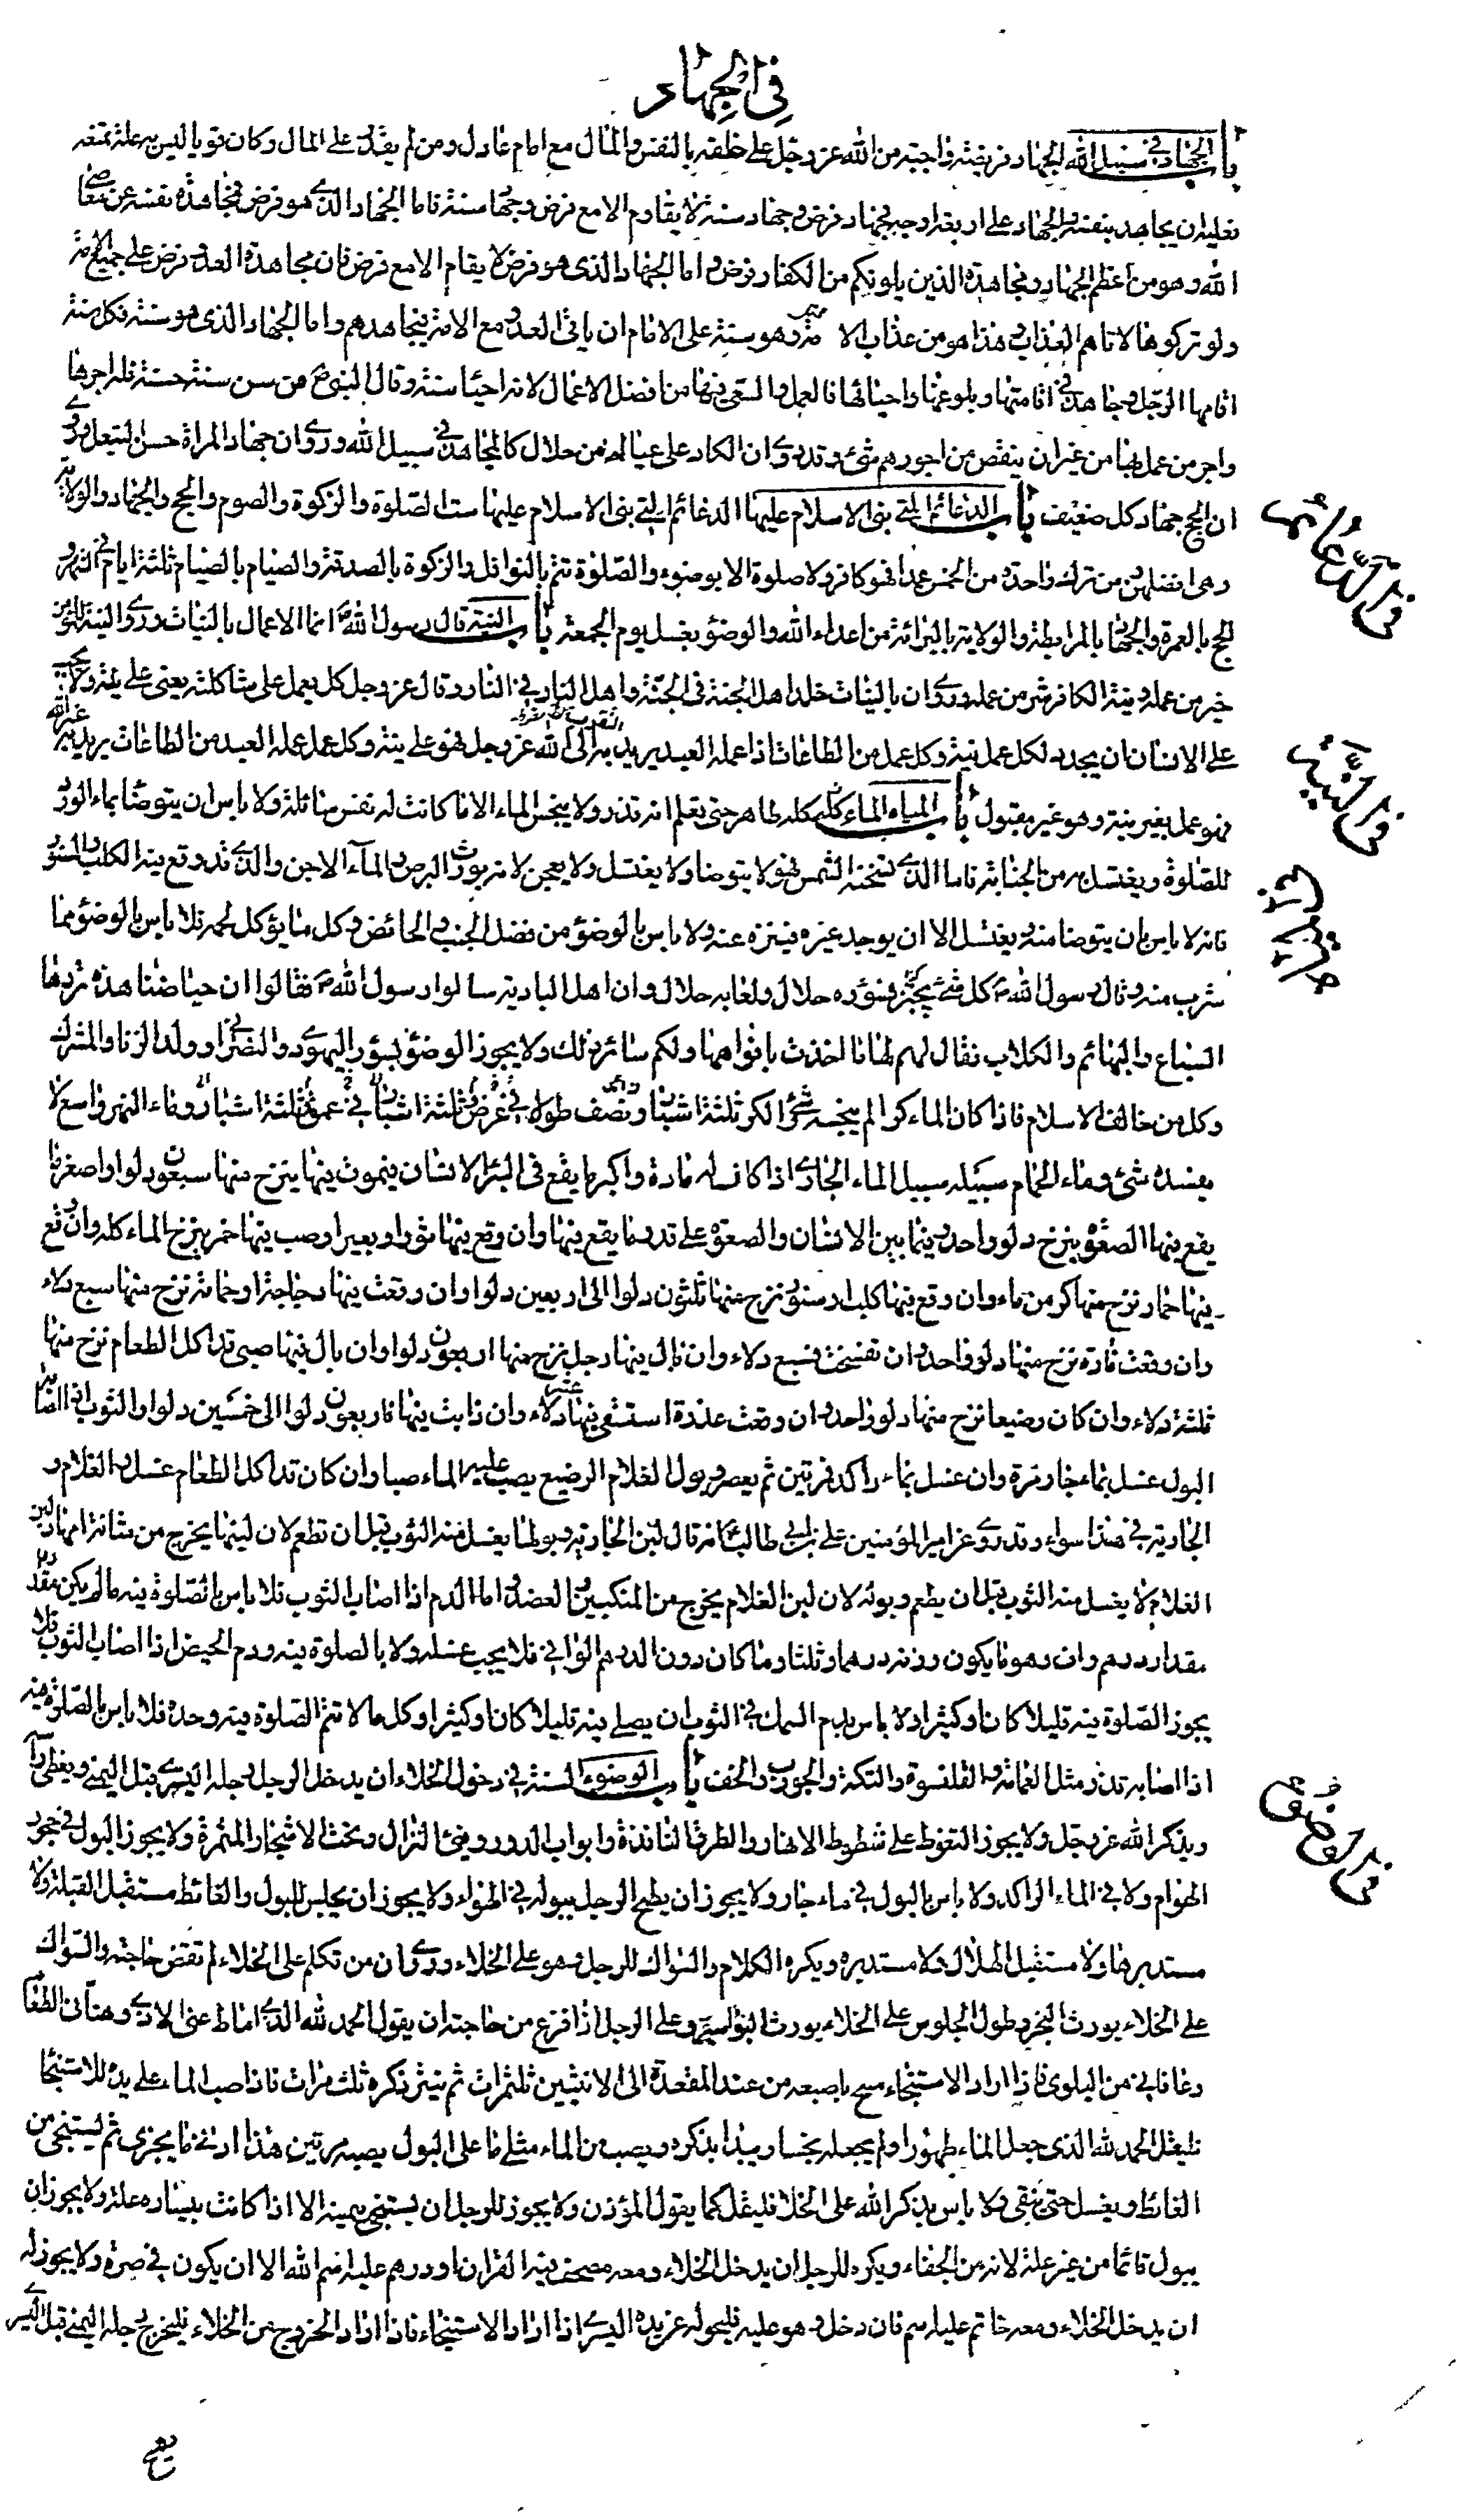 في الجهاد
باب الجهاد في سبيل الله الجهاد فريضة واجبة من الله عز وجل على خلقه بالنفس والمال مع امام عادل ومن لم يقدر على المال وكان قويا ليس به علة تمنعه
فعليه ان يجاهد بنفسه والجهاد على اربعة اوجه فجهاد فرض وجهاد سنة لا يقام الا مع فرض وجهاد سنة فاما الجهاد الذي هو فرض فمجاهدة نفسه عن معاصي
الله وهو من اعظم الجهاد ومجاهدة الذين يلونكم من الكفار فرض واما الجهاد الذي هو فرض لا يقام الا مع فرض فان مجاهدة العدو فرض على جميع الامة
ولو تركوها لاتاهم العذاب هذا هو من عذاب الامة وهو سنة على الامام ان ياتي العدو مع الامة فيجاهدهم واما الجهاد الذي هو سنة فكل سنة
اقامها الرجل وجاهد في اقامتها وبلوغها واحيائها فالعمل والسعي فيها من افضل الاعمال لانه احيا سنة وقال النبي ص من سن سنة حسنة فله اجرها
واجر من عمل بها من غير ان ينقص من اجورهم شئ وقد روي ان الكاد على عياله من حلال كالمجاهد في سبيل الله وروي ان جهاد المراة حسن التبعل وروي
ان الحج جهاد كل ضعيف باب الدعائم التي بنى الاسلام عليها الدعائم التي بنى الاسلام عليها ست الصلوة والزكوة والصوم والحج والجهاد والولاية
وهي افضلهن من ترك واحدة من الخمس عمدا فهو كافر ولا صلوة الا بوضوء والصلوة تتم بالنوافل والزكوة بالصدقة والصيام بالصيام ثلثة ايام في الشهر و
الحج بالعمرة والجهاد بالمرابطة والولاية بالبرائة من اعداء الله والوضؤ بغسل يوم الجمعة باب النية قال رسول الله ص انما الاعمال بالنيات وروي نية المؤمن
خير من عمله ونية الكافر شر من عمله وروي ان بالنيات خلد اهل الجنة في الجنة واهل النار في النار وقال عز وجل كل يعمل على شاكلته يعني على نيته ولا يجب
على الانسان ان يجدد لكل عمل نية وكل عمل من الطاعات اذا عمله العبد يريد به التقرب الى الله عز وجل فهو على نية وكل عمل عمله العبد من الطاعات يريد به غير الله
فهو عمل بغير نية وهو غير مقبول باب المياه الماء كله طاهر حتى تعلم انه قذر ولا ينجس الماء الا ما كانت له نفس سائلة ولا باس ان يتوضا بماء الورد
للصلوة ويغتسل به من الجنابة فاما الذي تسخنه الشمس فهو لا يتوضا ولا يغتسل ولا يعجن لانه يورث البرص والمآء الاجن والذي قد وقع فيه الكلب والسنور
فانه لا باس بان يتوضا منه ويغتسل الا ان يوجد غيره فينزه عنه ولا باس بالوضؤ من فضل الجنب والحائض وكل ما يؤكل لحمه فلا باس بالوضؤ مما
شرب منه وقال رسول الله ص كل شئ يجتر فسؤره حلال ولعابه حلال وان اهل البادية سالوا رسول الله ص فقالوا ان حياضنا هذه تردها
السباع والبهائم والكلاب فقال لهم لها ما اخذت بافواهها ولكم سائر ذلك ولا يجوز الوضؤ بسؤر اليهودي والنصراني وولد الزنا والمشرك
وكل من خالف الاسلام فاذا كان الماء كرا لم ينجسه شئ الكر ثلثة اشبار ونصف طولا في عرض ثلثة اشبار في عمق ثلثة اشبار وماء النهر واسع لا
يفسده شئ وماء الحمام سبيله سبيل الماء الجاري اذا كانت له مادة واكبر ما يقع في البئر الانسان فيموت فيها ينزح منها سبعون دلوا واصغر ما
يقع فيها الصعوة ينزح دلو واحد وفيما بين الانسان والصعوة على قدر ما يقع فيها وان وقع فيها ثور او بعير او صب فيها خمر ينزح الماء كله وان وقع
فيها حمار نزح منها كر من ماء وان وقع فيها كلب او سنور نزح منها ثلثون دلوا الى اربعين دلوا وان وقعت فيها دجاجة او حمامة نزح منها سبع دلاء
وان وقعت فارة نزح منها دلو واحد وان تفسخت فسبع دلاء وان بال فيها رجل نزح منها اربعون دلوا وان بال فيها صبي قد اكل الطعام نزح منها
ثلثة دلاء وان كان رضيعا نزح منها دلو واحد وان وقعت عذرة استقي منها عشر دلاء وان ذابت فيها فاربعون دلوا الى خمسين دلوا والثوب اذا اصابه
البول غسل بماء جار مرة وان غسل بماء راكد فمرتين ثم يعصر وبول الغلام الرضيع يصب عليه الماء صبا وان كان قد اكل الطعام غسل والغلام و
الجارية في هذا سواء وقد روي عن امير المؤمنين علي بن ابي طالب ع انه قال لبن الجارية وبولها يغسل منه الثوب قبل ان تطعم لان لبنها يخرج من مثانة امها ولبن
الغلام لا يغسل منه الثوب قبل ان يطعم وبوله لان لبن الغلام يخرج من المنكبين والعضد واما الدم اذا اصاب الثوب فلا باس بالصلوة فيه ما لم يكن مقداره
مقدار درهم واف وهو ما يكون وزنه درهما وثلثا وما كان دون الدرهم الوافي فلا يجب غسله ولا بالصلوة فيه ودم الحيض اذا اصاب الثوب فلا
يجوز الصلوة فيه قليلا كان او كثيرا ولا باس بدم السمك في الثوب ان يصلي فيه قليلا كان او كثيرا وكل ما لا تتم الصلوة فيه وحده فلا باس بالصلوة فيه
اذا اصابه قذر مثل العمامة والقلنسوة والتكة والجورب والخف باب الوضوء السنة في دخول الخلاء ان يدخل الرجل رجله اليسرى قبل اليمنى ويغطي راسه
ويذكر الله عز وجل ولا يجوز التغوط على شطوط الانهار والطرق النافذة وابواب الدور وفئ النزال وتحت الاشجار المثمرة ولا يجوز البول في جحور
الهوام ولا في الماء الراكد ولا باس بالبول في ماء جار ولا يجوز ان يطمح الرجل ببوله في الهواء ولا يجوز ان يجلس للبول والغائط مستقبل القبلة ولا
مستدبرها ولا مستقبل الهلال ولا مستدبره ويكره الكلام والسواك للرجل وهو على الخلاء وروي ان من تكلم على الخلاء لم تقض حاجته والسواك
على الخلاء يورث البخر وطول الجلوس على الخلاء يورث البواسير وعلى الرجل اذا فرغ من حاجته ان يقول الحمد لله الذي اماط عني الاذى وهناني الطعام
وعافاني من البلوى فاذا اراد الاستنجاء مسح باصبعه من عند المقعدة الى الانثيين ثلث مرات ثم ينتر ذكره ثلث مرات فاذا صب الماء على يده للاستنجاء
فليقل الحمد لله الذي جعل الماء طهورا ولم يجعله نجسا ويبدا بذكره ويصب من الماء مثلي ما على البول يصبه مرتين هذا ادنى ما يجزي ثم يستنجي من
الغائط ويغسل حتى ينقى ولا باس بذكر الله على الخلا فليقل كما يقول المؤذن ولا يجوز للرجل ان يستنجي بيمينه الا اذا كانت بيساره علة ولا يجوز ان
يبول قائما من غير علة لانه من الجفاء ويكره للرجل ان يدخل الخلاء ومعه مصحف فيه القران او درهم عليه اسم الله الا ان يكون في صرة ولا يجوز له
ان يدخل الخلاء ومعه خاتم عليه اسم فان دخل وهو عليه فليحوله عن يده اليسرى اذا اراد الاستنجاء فاذا اراد الخروج من الخلاء فليخرج رجله اليمنى قبل اليسرى
في الدعائم
في النية
في الوضوء